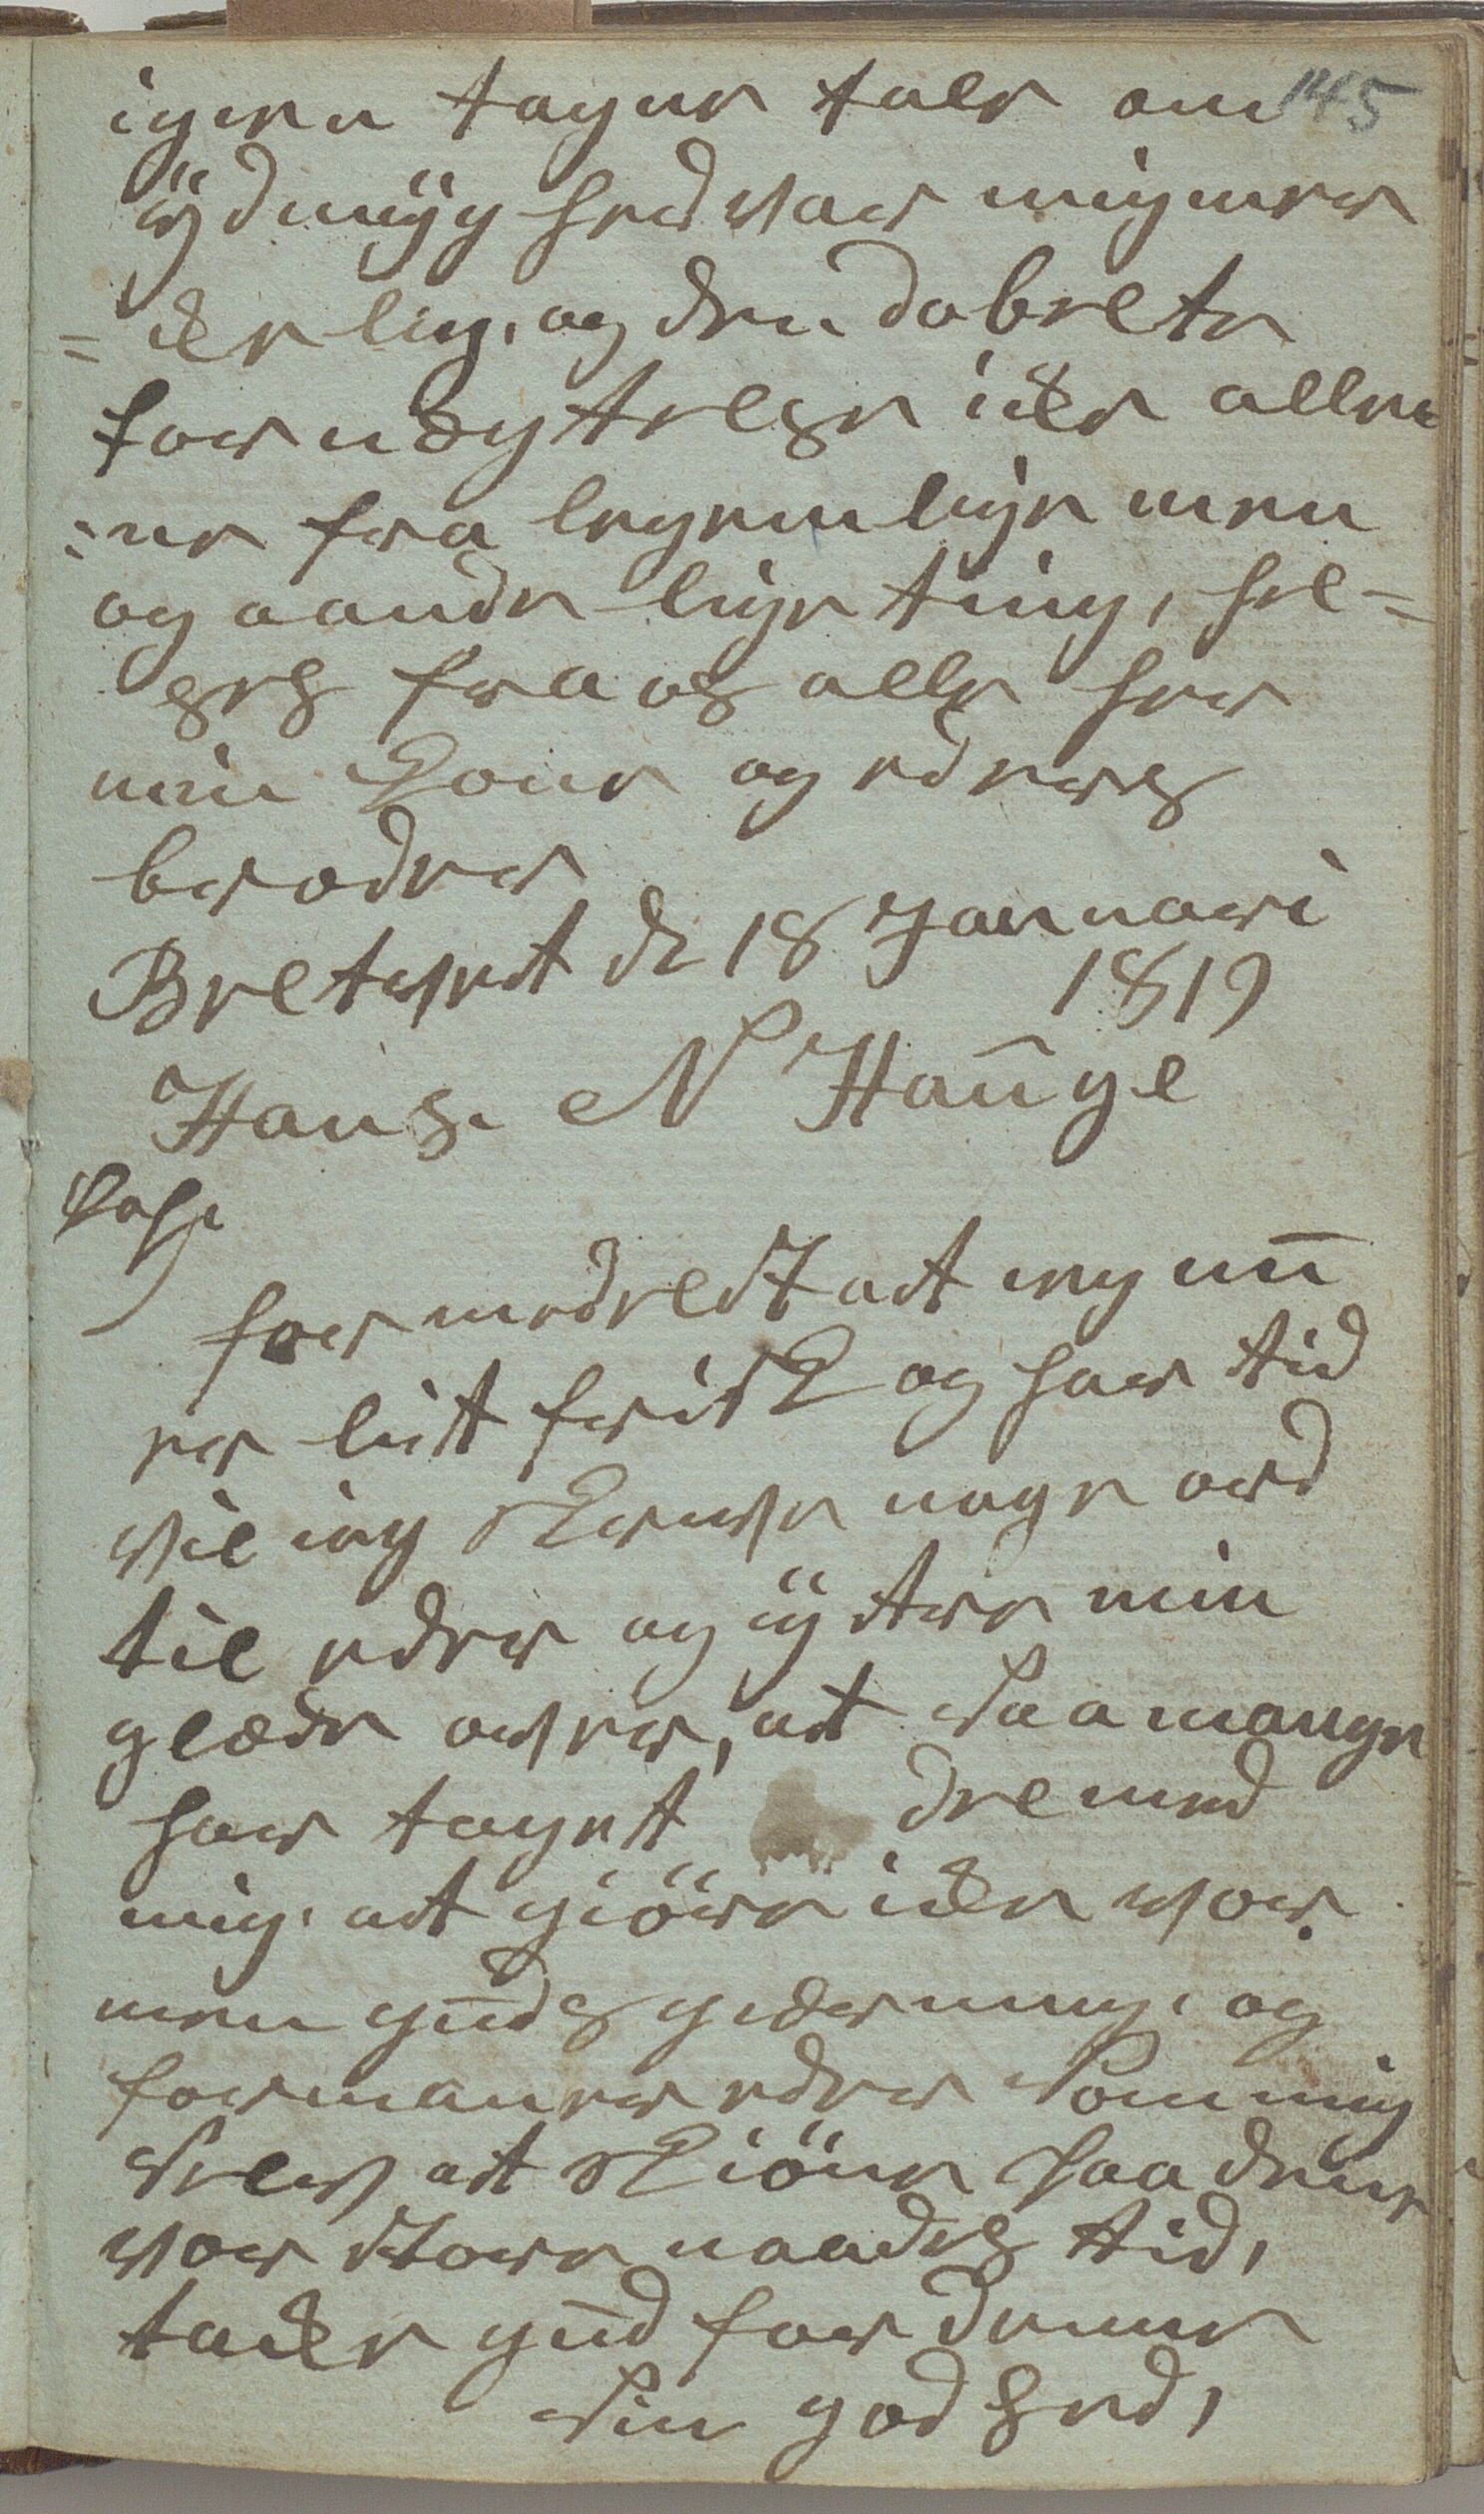 igien tagne tale om 145
ÿdmÿghed var mig mer
= ække lig, og den dobelte
fornøÿtelse ikke alle
=ne fra legemlige men
og aandelige ting, hel=
ses fra os alle her
min Kone og eders
broder
Breteved d 18 Januari
1819
Hans. N Haŭge
formedelst at ieg nŭ
er lit frisk og har tid
vil ieg skrive noge ord
til eder og ÿttre min
glæde over, at saa mange
har taget del med
mig. at giöre ikke vor.
men gŭds gierning. og
formaner eder som mig
selv at skiöne paa denne
vor store naades tid,
takke gŭd for denne
sin godhed,